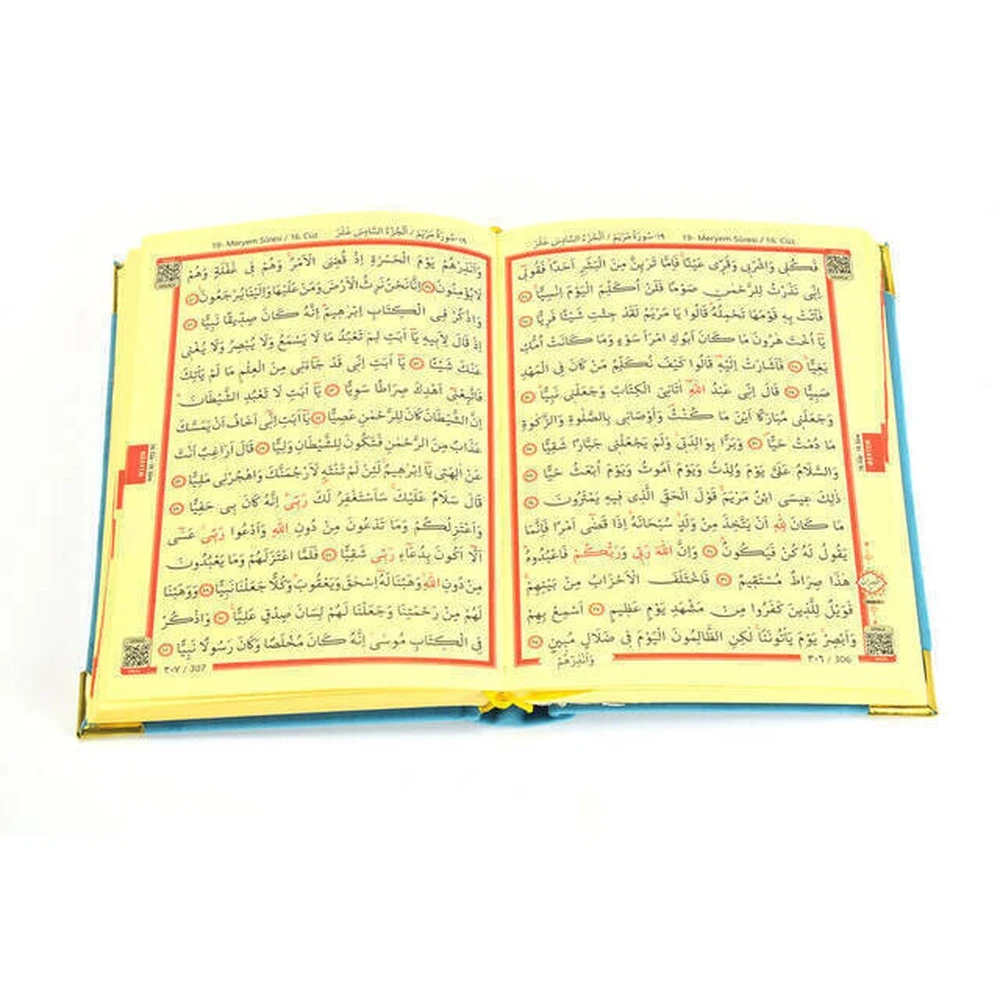 ١٩-سُورَةُ مَرْيَمَ / اَلْجُزْءُ السَّادِسَ عَشَرَ 19- Meryem Sûresi / 16. Cüz
فَكُلٖى وَاشْرَبٖى وَقَرّٖى عَيْنًاۚ فَاِمَّا تَرَيِنَّ مِنَ الْبَشَرِ اَحَدًاۙ فَقُولٖٓى
اِنّٖى نَذَرْتُ لِلرَّحْمٰنِ صَوْمًا فَلَنْ اُكَلِّمَ الْيَوْمَ اِنْسِيًّاۚ ﴿٢٦﴾
فَاَتَتْ بِهٖ قَوْمَهَا تَحْمِلُهُۜ قَالُوا يَا مَرْيَمُ لَقَدْ جِئْتِ شَيْـًٔا فَرِيًّا ﴿٢٧﴾
يَٓا اُخْتَ هٰرُونَ مَا كَانَ اَبُوكِ امْرَاَ سَوْءٍ وَمَا كَانَتْ اُمُّكِ
بَغِيًّاۚ ﴿٢٨﴾ فَاَشَارَتْ اِلَيْهِۜ قَالُوا كَيْفَ نُكَلِّمُ مَنْ كَانَ فِى الْمَهْدِ
صَبِيًّا ﴿٢٩﴾ قَالَ اِنّٖى عَبْدُ اللّٰهِۜ اٰتَانِىَ الْكِتَابَ وَجَعَلَنٖى نَبِيًّاۙ ﴿٣٠﴾
وَجَعَلَنٖى مُبَارَكًا اَيْنَ مَا كُنْتُۖ وَاَوْصَانٖى بِالصَّلٰوةِ وَالزَّكٰوةِ
مَا دُمْتُ حَيًّاۖ ﴿٣١﴾ وَبَرًّا بِوَالِدَتٖىۘ وَلَمْ يَجْعَلْنٖى جَبَّارًا شَقِيًّا ﴿٣٢﴾
وَالسَّلَامُ عَلَىَّ يَوْمَ وُلِدْتُ وَيَوْمَ اَمُوتُ وَيَوْمَ اُبْعَثُ حَيًّا ﴿٣٣﴾
ذٰلِكَ عٖيسَى ابْنُ مَرْيَمَۚ قَوْلَ الْحَقِّ الَّذٖى فٖيهِ يَمْتَرُونَ ﴿٣٤﴾
مَا كَانَ لِلّٰهِ اَنْ يَتَّخِذَ مِنْ وَلَدٍۙ سُبْحَانَهُۜ اِذَا قَضٰٓى اَمْرًا فَاِنَّمَا
يَقُولُ لَهُ كُنْ فَيَكُونُۜ ﴿٣٥﴾ وَاِنَّ اللّٰهَ رَبّٖى وَرَبُّكُمْ فَاعْبُدُوهُۜ
هٰذَا صِرَاطٌ مُسْتَقٖيمٌ ﴿٣٦﴾ فَاخْتَلَفَ الْاَحْزَابُ مِنْ بَيْنِهِمْۚ
فَوَيْلٌ لِلَّذٖينَ كَفَرُوا مِنْ مَشْهَدِ يَوْمٍ عَظٖيمٍ ﴿٣٧﴾ اَسْمِعْ بِهِمْ
وَاَبْصِرْۙ يَوْمَ يَأْتُونَنَا لٰكِنِ الظَّالِمُونَ الْيَوْمَ فٖى ضَلَالٍ مُبٖينٍ ﴿٣٨﴾
وَاَنْذِرْهُمْ
٣٠٦ / 306
MERYEM
19- Meryem Sûresi / 16. Cüz ١٩-سُورَةُ مَرْيَمَ / اَلْجُزْءُ السَّادِسَ عَشَرَ
وَاَنْذِرْهُمْ يَوْمَ الْحَسْرَةِ اِذْ قُضِىَ الْاَمْرُۢ وَهُمْ فٖى غَفْلَةٍ وَهُمْ
لَا يُؤْمِنُونَ ﴿٣٩﴾ اِنَّا نَحْنُ نَرِثُ الْاَرْضَ وَمَنْ عَلَيْهَا وَاِلَيْنَا يُرْجَعُونَۚ ﴿٤٠﴾
وَاذْكُرْ فِى الْكِتَابِ اِبْرٰهٖيمَۜ اِنَّهُ كَانَ صِدّٖيقًا نَبِيًّا ﴿٤١﴾
اِذْ قَالَ لِاَبٖيهِ يَٓا اَبَتِ لِمَ تَعْبُدُ مَا لَا يَسْمَعُ وَلَا يُبْصِرُ وَلَا يُغْنٖى
عَنْكَ شَيْـًٔا ﴿٤٢﴾ يَٓا اَبَتِ اِنّٖى قَدْ جَٓاءَنٖى مِنَ الْعِلْمِ مَا لَمْ يَأْتِكَ
فَاتَّبِعْنٖٓى اَهْدِكَ صِرَاطًا سَوِيًّا ﴿٤٣﴾ يَٓا اَبَتِ لَا تَعْبُدِ الشَّيْطَانَۜ
اِنَّ الشَّيْطَانَ كَانَ لِلرَّحْمٰنِ عَصِيًّا ﴿٤٤﴾ يَٓا اَبَتِ اِنّٖٓى اَخَافُ اَنْ يَمَسَّكَ
عَذَابٌ مِنَ الرَّحْمٰنِ فَتَكُونَ لِلشَّيْطَانِ وَلِيًّا ﴿٤٥﴾ قَالَ اَرَاغِبٌ اَنْتَ
عَنْ اٰلِهَتٖى يَٓا اِبْرٰهٖيمُۚ لَئِنْ لَمْ تَنْتَهِ لَاَرْجُمَنَّكَ وَاهْجُرْنٖى مَلِيًّا ﴿٤٦﴾
قَالَ سَلَامٌ عَلَيْكَۚ سَاَسْتَغْفِرُ لَكَ رَبّٖىۜ اِنَّهُ كَانَ بٖى حَفِيًّا ﴿٤٧﴾
وَاَعْتَزِلُكُمْ وَمَا تَدْعُونَ مِنْ دُونِ اللّٰهِ وَاَدْعُوا رَبّٖىۘ عَسٰٓى
اَلَّٓا اَكُونَ بِدُعَٓاءِ رَبّٖى شَقِيًّا ﴿٤٨﴾ فَلَمَّا اعْتَزَلَهُمْ وَمَا يَعْبُدُونَ
مِنْ دُونِ اللّٰهِۙ وَهَبْنَا لَهُٓ اِسْحٰقَ وَيَعْقُوبَۜ وَكُلًّا جَعَلْنَا نَبِيًّا ﴿٤٩﴾ وَوَهَبْنَا
لَهُمْ مِنْ رَحْمَتِنَا وَجَعَلْنَا لَهُمْ لِسَانَ صِدْقٍ عَلِيًّا۟ ﴿٥٠﴾ وَاذْكُرْ
فِى الْكِتَابِ مُوسٰٓىۘ اِنَّهُ كَانَ مُخْلَصًا وَكَانَ رَسُولًا نَبِيًّا ﴿٥١﴾
٣٠٧ / 307
MERYEM